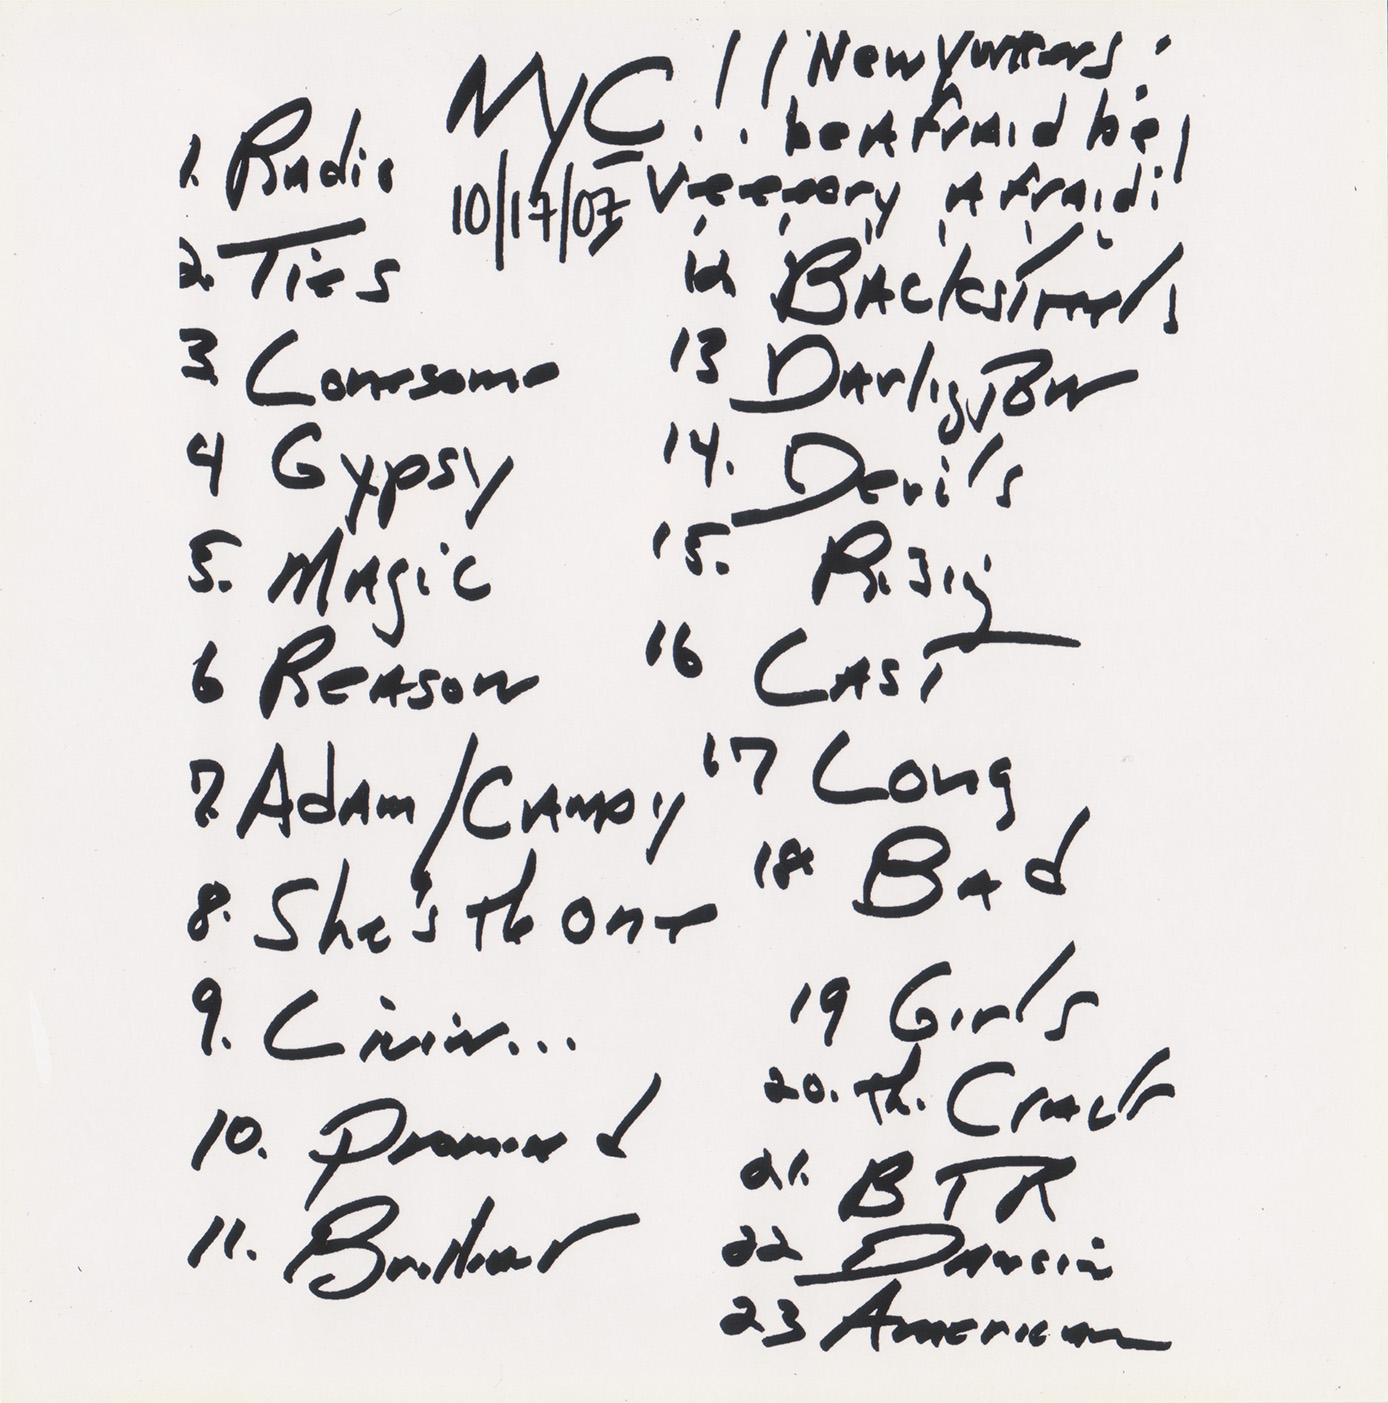 NYC!! New Yorkers:
10/17/07 be Afraid be
Veeeary Afraid!
1. Radio
2. Ties
3 Lonesome
4 Gypsy
5. Magic
6 Reason
7. Adam/Candy
8. She's the One
9. Livin...
10. Promised
11. Brilliant
12. Backstreets
13 Darlig, Bw
14. Devil's
15. Rising
16 Last
17 Long
18. Bad
19 Girls
20. th.
21. BTR
22 Dancin
23 American